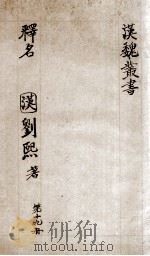 漢魏叢書
釋名
漢劉熙著
第十九冊